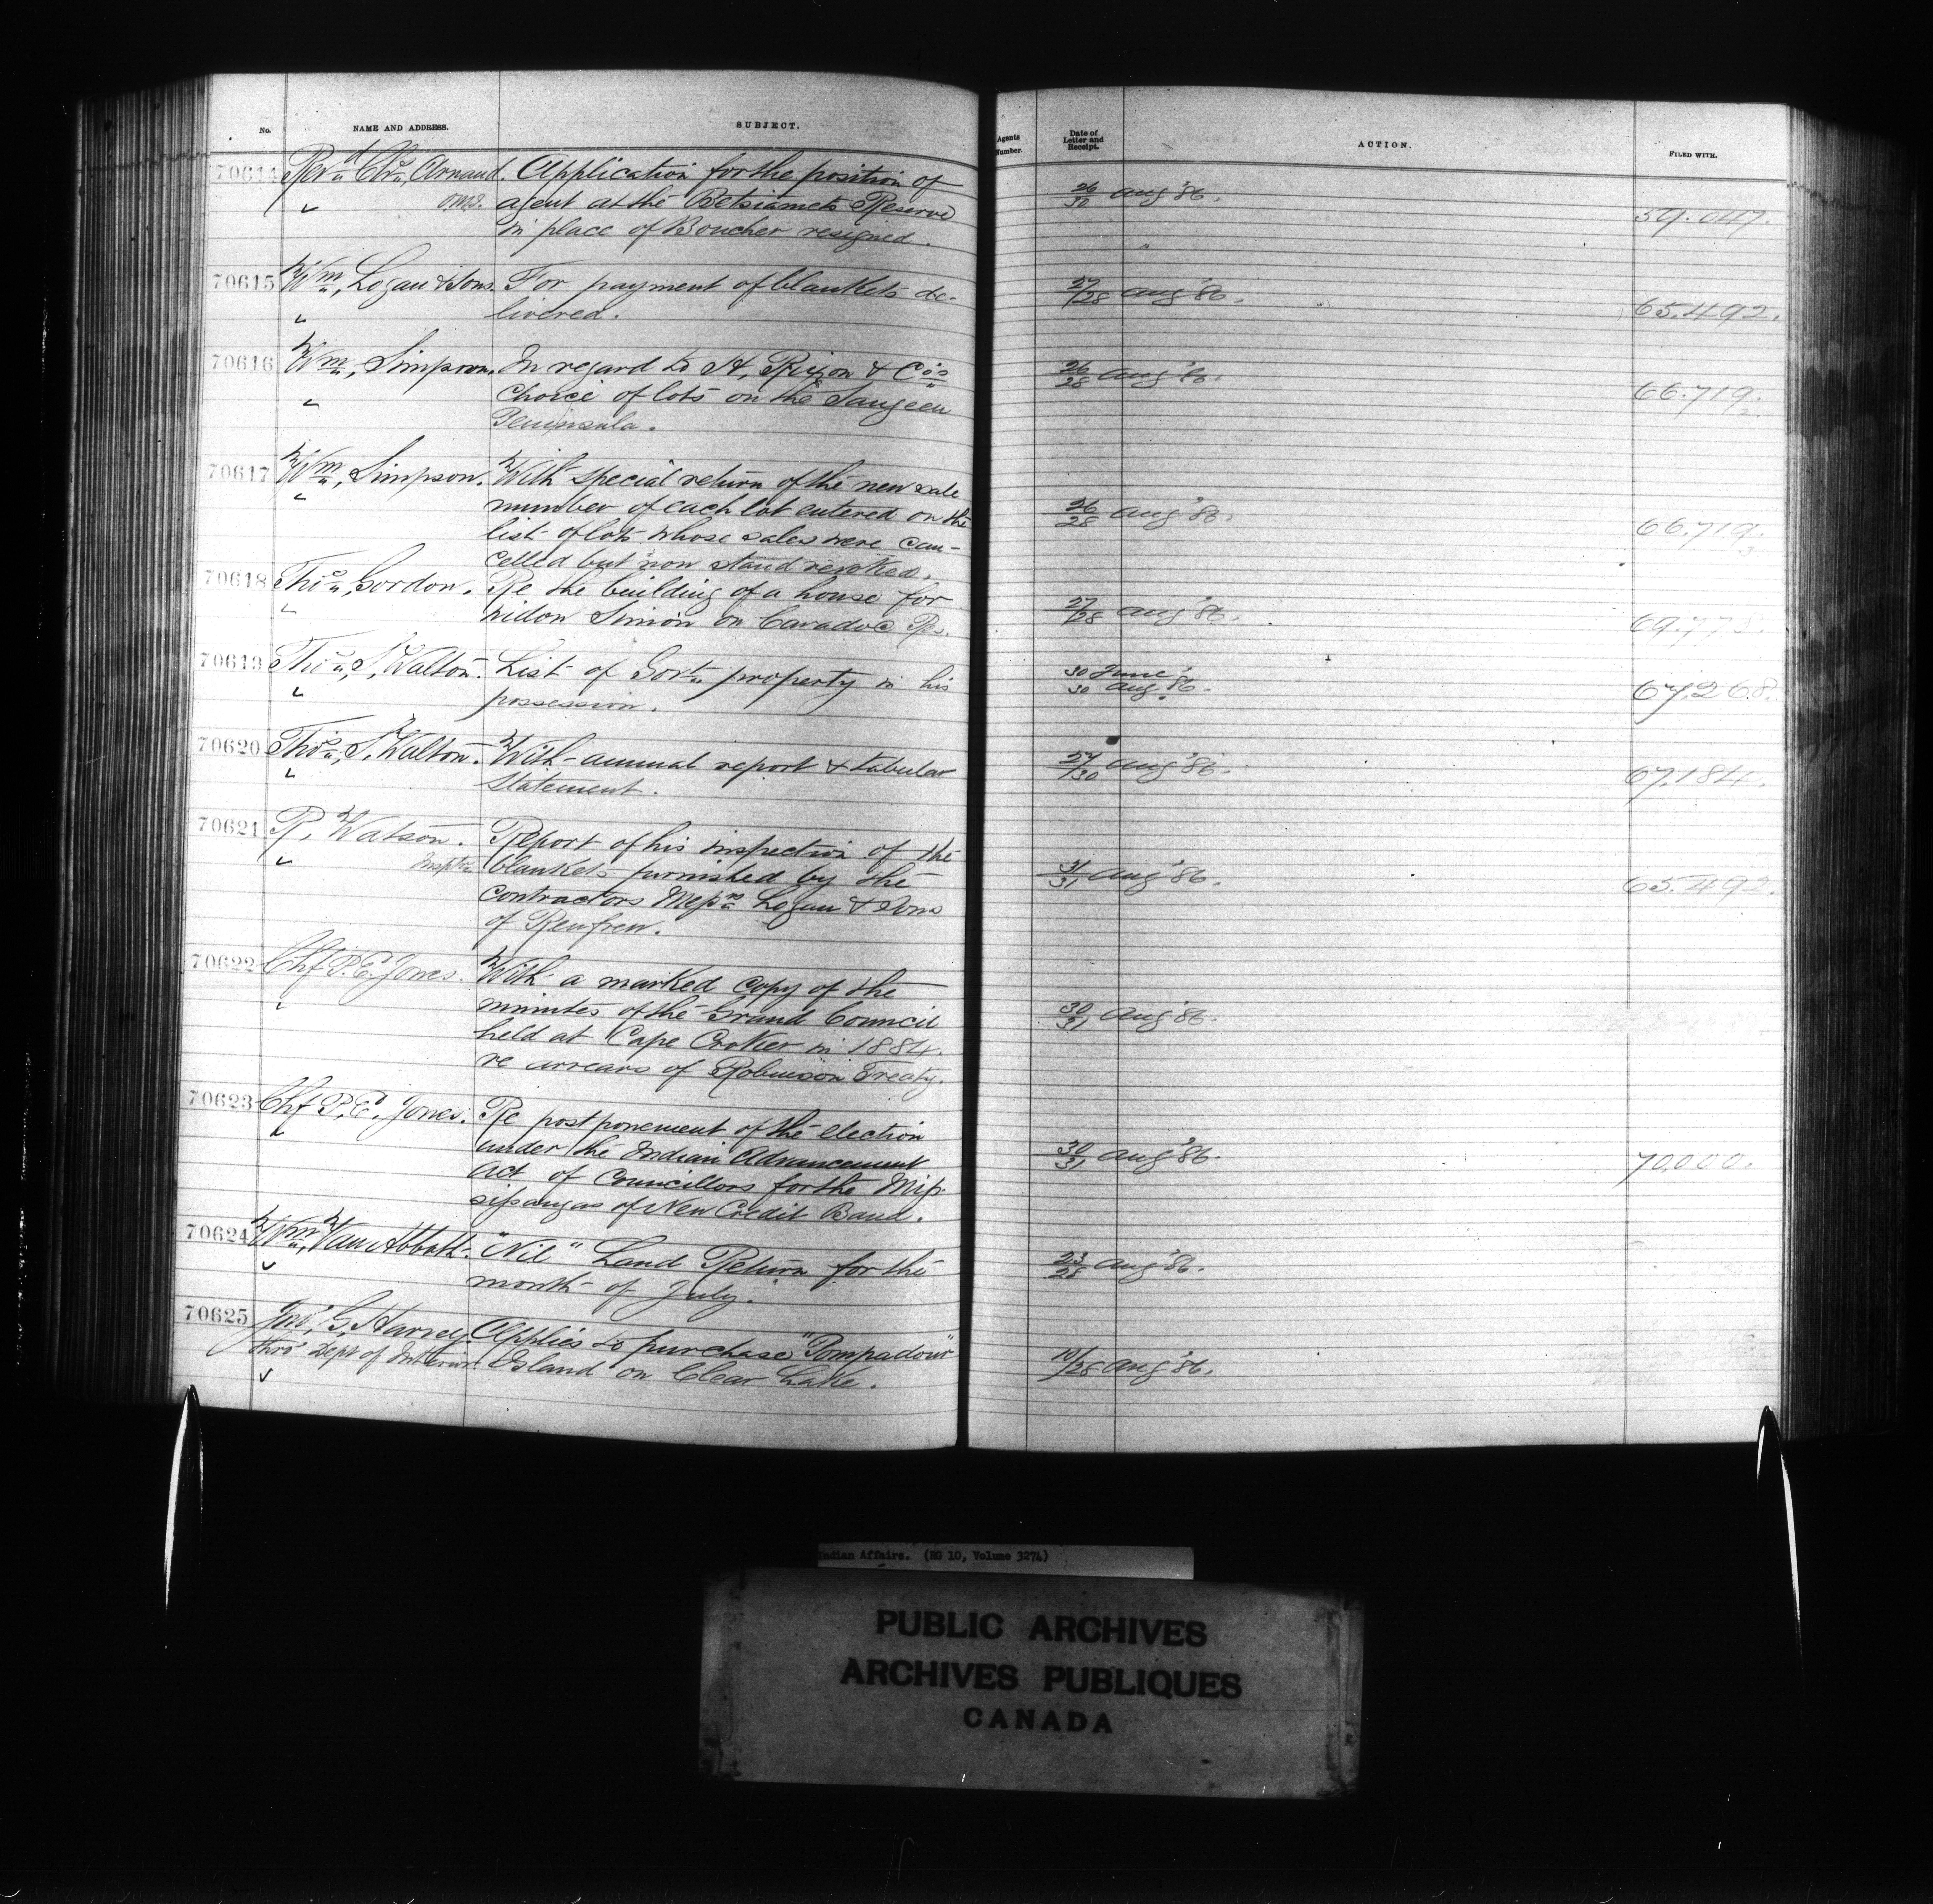 No. NAME AND ADDRESS. SUBJECT. Agents Number. Date of Letter and Receipt. ACTION. FILED WITH.
70614 Revd Chs, Arnaud. Application for the position of 26/30 Aug '86.
O.M.I. agent at the Betsiamets Reserve 59.047.
in place of Boucher resigned.
70615 Wm, Logan & Sons. For payment of blankets de- 27/28 Aug '86.
livered. 65.492.
70616 Wm, Simpson. In regard to A, Rixon & Co's 26/28 Aug '86.
choice of lots on the Saugeen 66.719.
2
Peninsula.
70617 Wm, Simpson. With special return of the new sale
number of each lot entered on the 26/28 Aug '86.
list of lots whose sales were can- 66.719.
3
celled but now stand revoked.
70618 Thos, Gordon. Re the building of a house for 27/28 Aug '86.
widow Simon on Caradoc Rs. 69.778.
70619 Thos, S, Walton. List of Govt property in his 30 June 30 Aug '86.
possession. 67.268.
70620 Thos, S, Walton. With annual report & tabular 27/30 Aug '86.
statement. 67.184.
70621 R, Watson. Report of his inspection of the
Insptor blankets furnished by the 31/31 Aug '86. 65.492.
contractors Messrs Logan & Sons
of Renfrew.
70622 Chf P.E. Jones. With a marked copy of the
minutes of the Grand Council 30/31 Aug '86.
held at Cape Croker in 1884.
re arrears of Robinson Treaty.
70623 Chf P.E. Jones. Re postponement of the election
under the Indian Advancement 30/31 Aug '86. 70,000.
Act of Councillors for the Mis-
sissaugas of New Credit Band.
70624 Wm, Van Abbott. "Nil" Land Return for the 23/28 Aug '86.
month of July.
70625 Jno, G, Harvey. Applies to purchase "Pompadour"
thro' Dept of Interior Island on Clear Lake. 10/28 Aug '86.
Indian Affairs. (RG 10, Volume 3274)
PUBLIC ARCHIVES
ARCHIVES PUBLIQUES
CANADA